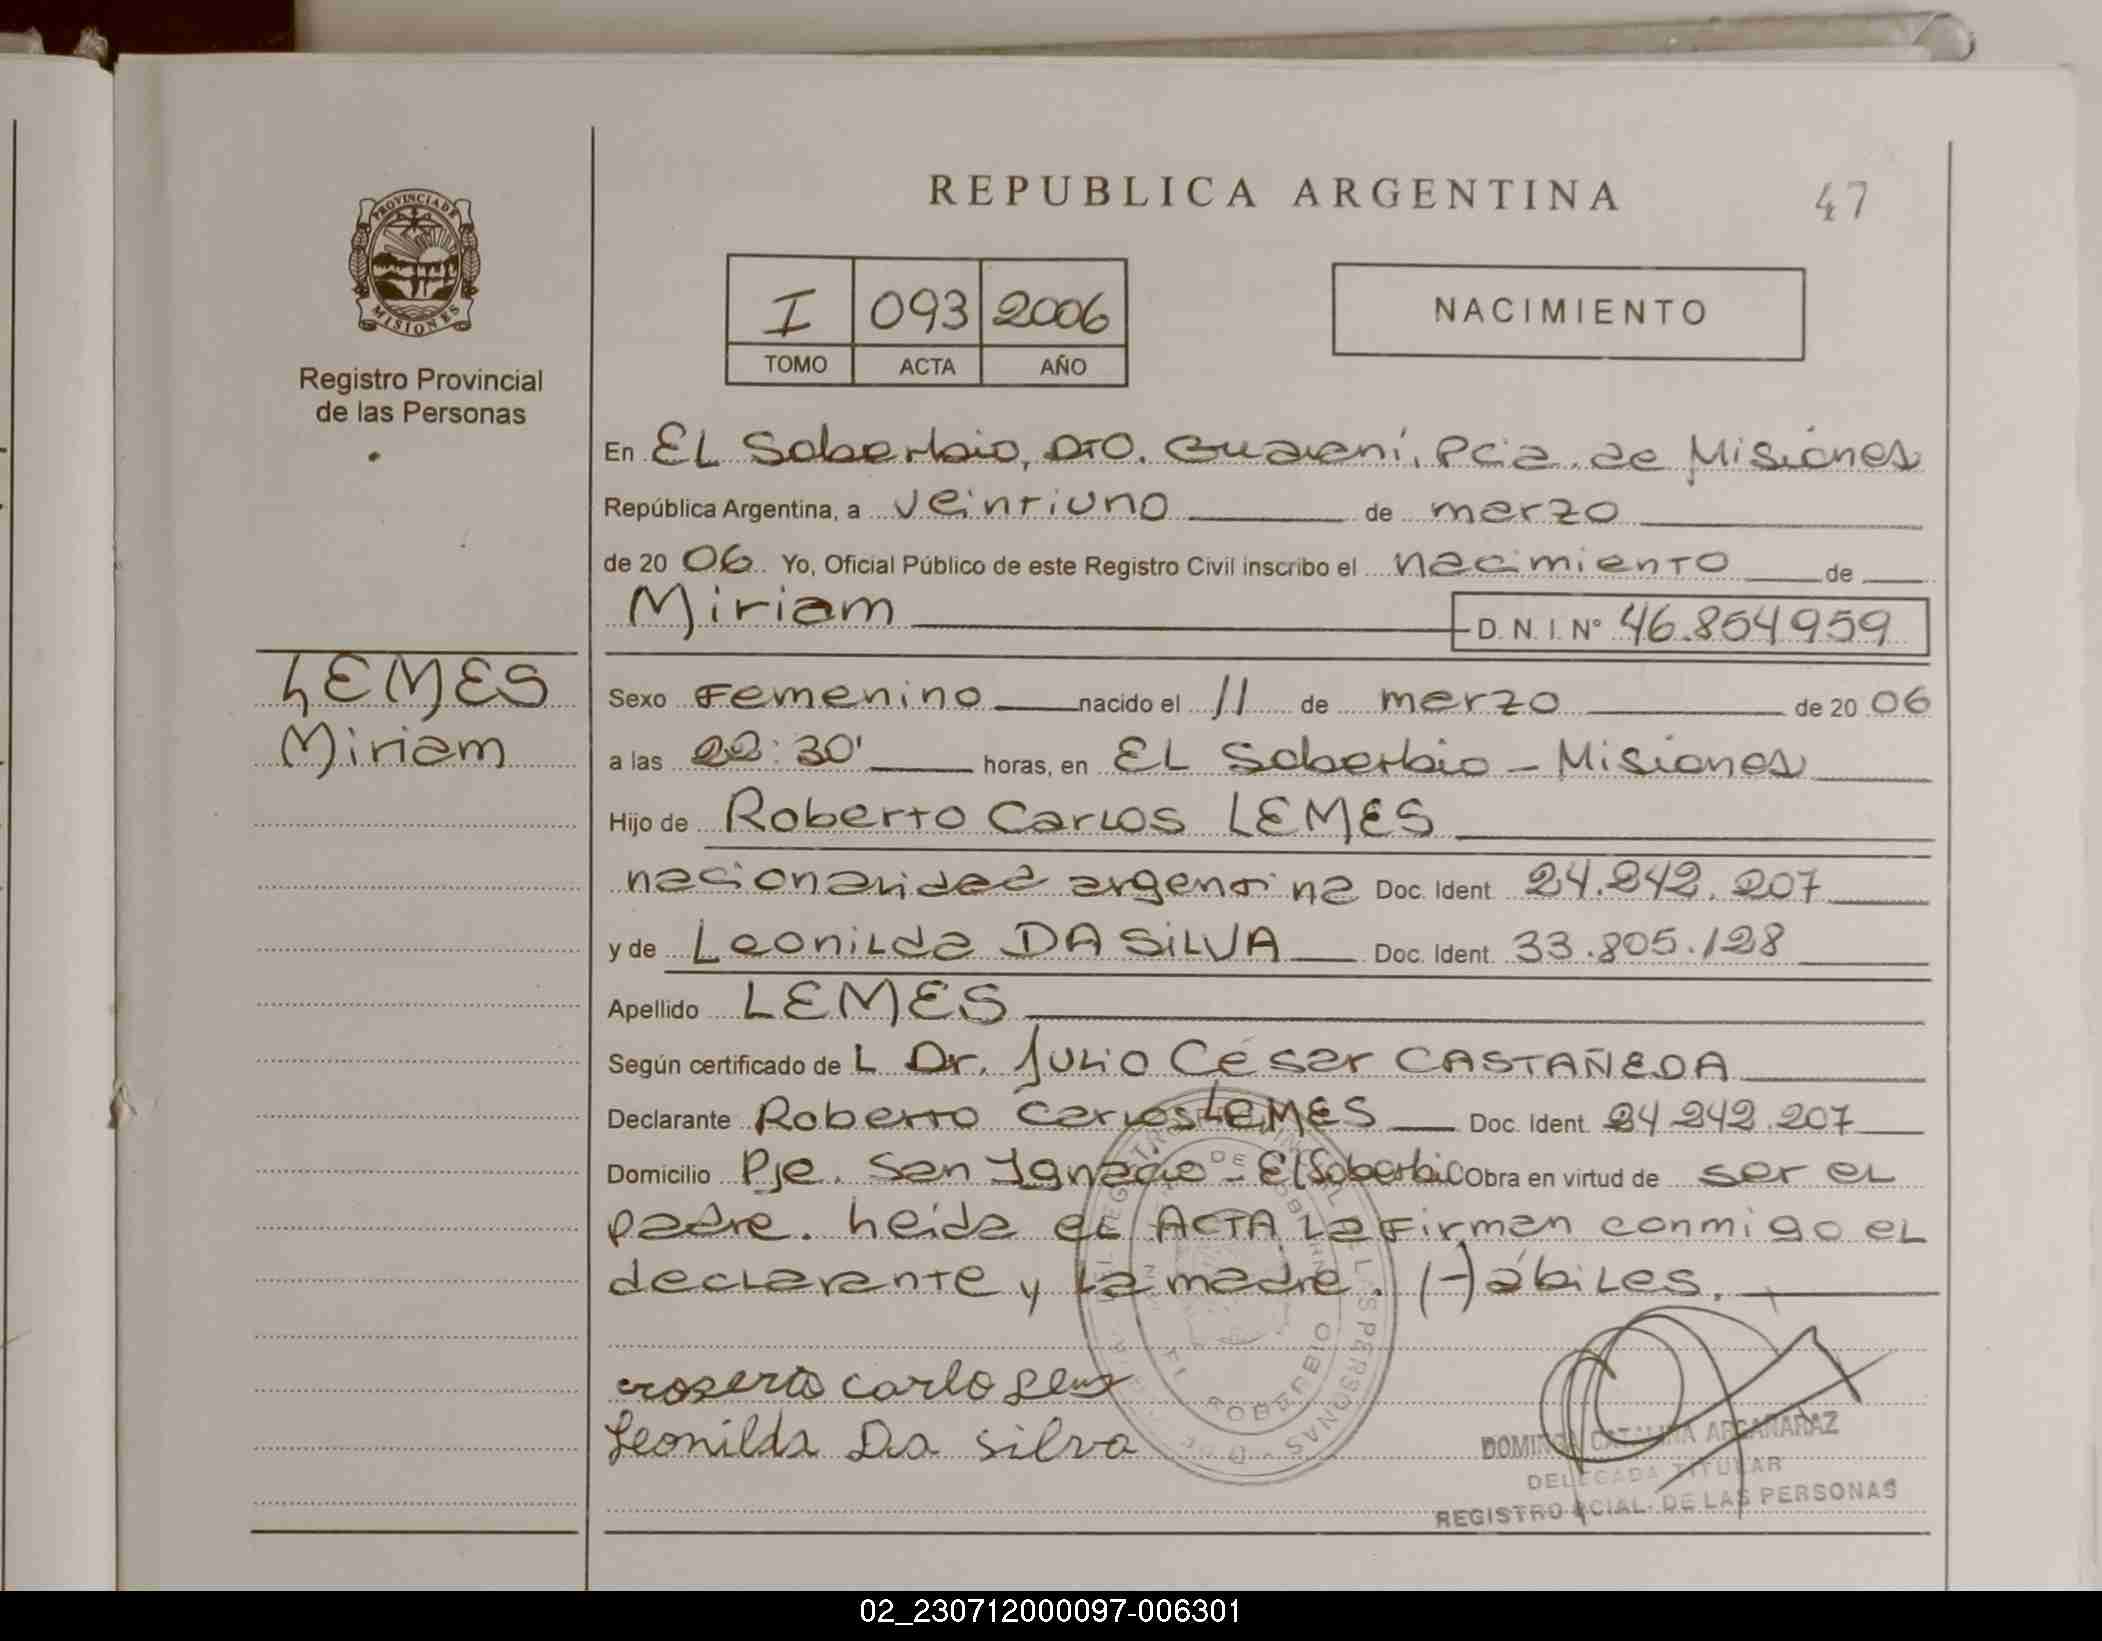 REPUBLICA ARGENTINA
47
PROVINCIA DE
MISIONES
Registro Provincial
de las Personas
I 093 2006
TOMO ACTA AÑO
NACIMIENTO
En EL Soberbio, DTO. Guaraní, Pcia. de Misiones
República Argentina, a veintiuno de marzo
de 20 06 Yo, Oficial Público de este Registro Civil inscribo el nacimiento de
Miriam D. N. I. N° 46.854959
LEMES
Miriam
Sexo Femenino nacido el 11 de marzo de 20 06
a las 22:30' horas, en EL Soberbio - Misiones
Hijo de Roberto Carlos LEMES
nacionalidad argentina Doc. Ident. 24.242.207
y de Leonilda DA SILVA Doc. Ident. 33.805.128
Apellido LEMES
Según certificado de L Dr. Julio César CASTAÑEDA
Declarante Roberto Carlos LEMES Doc. Ident. 24 242.207
Domicilio Pje. San Ignacio - El Soberbio Obra en virtud de ser el
padre. Leida el ACTA, la firman conmigo el
declarante y la madre. Hábiles.
carlo
Leonilda Da Silva
DOMINGA CATALINA ARGAÑARAZ
DELEGADA TITULAR
REGISTRO PCIAL. DE LAS PERSONAS
02_230712000097-006301